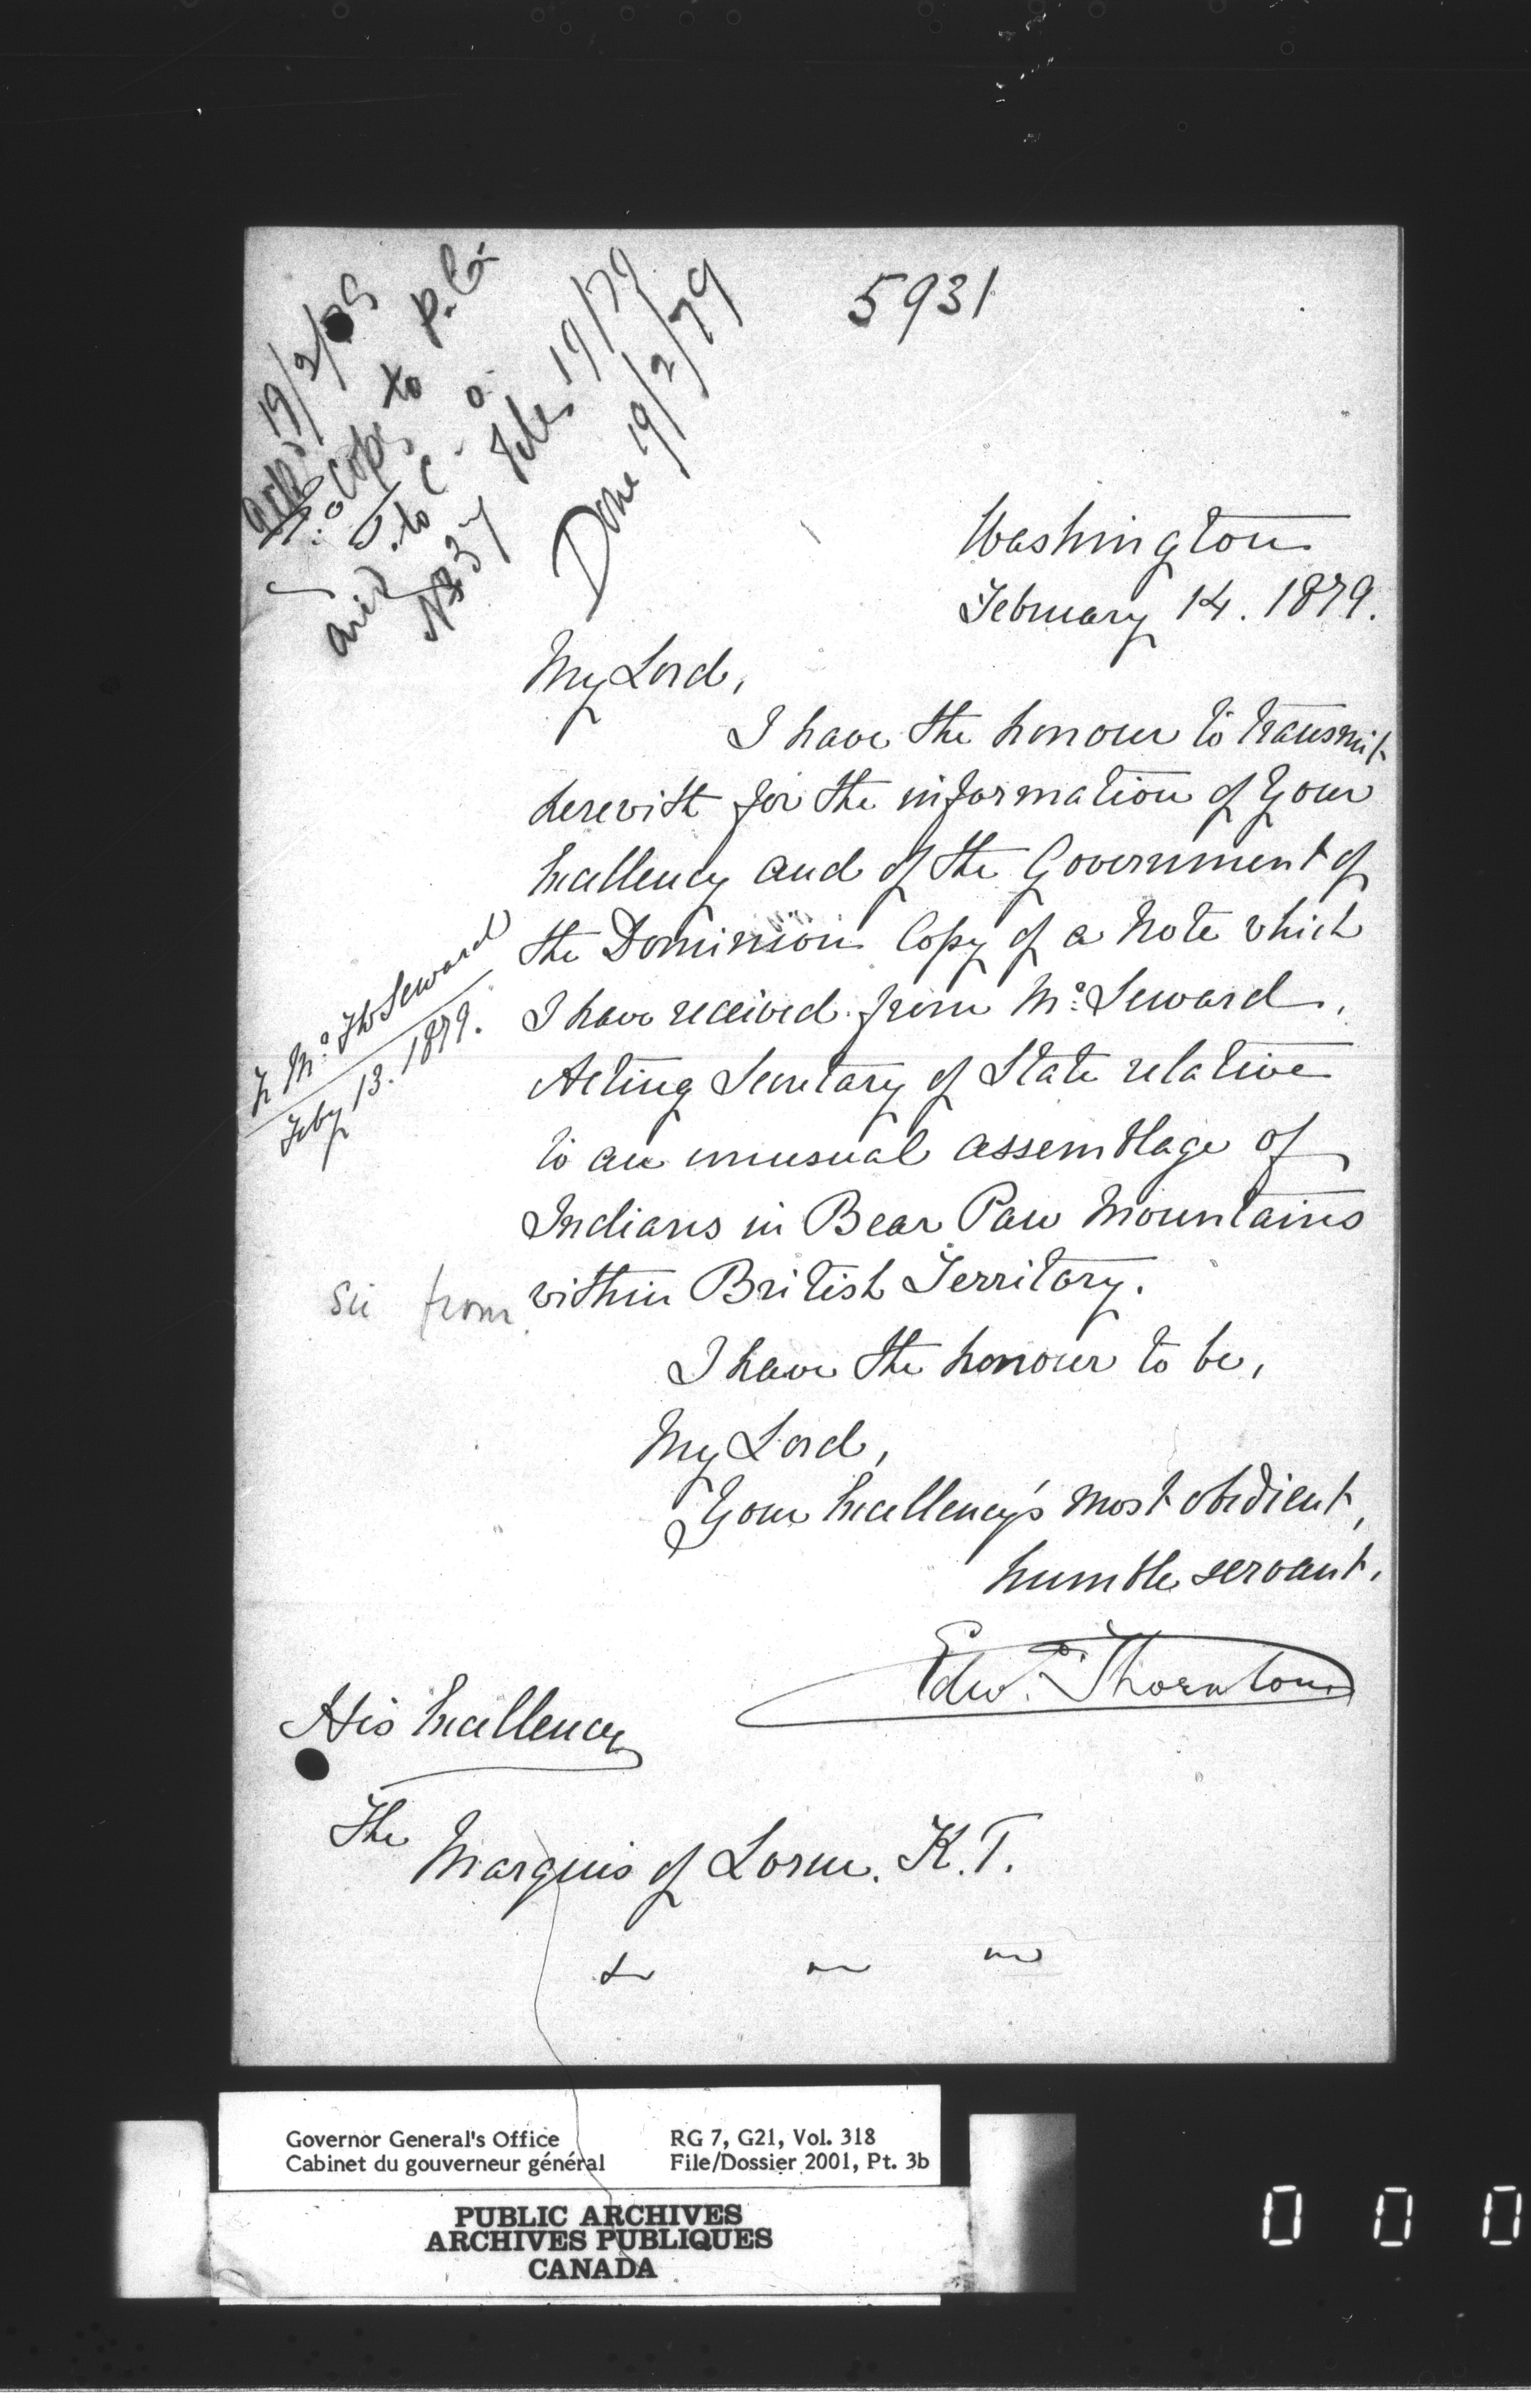 5931
19/2/79
Copy to P. Co.
to C. O.
No 37 Feb 19/79
Done 19/2/79
Washington
February 14. 1879.
My Lord,
I have the honour to transmit
herewith for the information of Your
Excellency and of the Government of
the Dominion Copy of a Note which
I have received from Mr. Seward,
Acting Secretary of State relative
to an unusual assemblage of
Indians in Bear Paw Mountains
within British Territory.
Fr Mr. FW Seward
Feby 13. 1879.
from
I have the honour to be,
My Lord,
Your Excellency's most obedient,
humble servant,
Edwd. Thornton
His Excellency
The
Marquis of Lorne. K.T.
Governor General's Office
Cabinet du gouverneur général
RG 7, G21, Vol. 318
File/Dossier 2001, Pt. 3b
PUBLIC ARCHIVES
ARCHIVES PUBLIQUES
CANADA
0 0 0